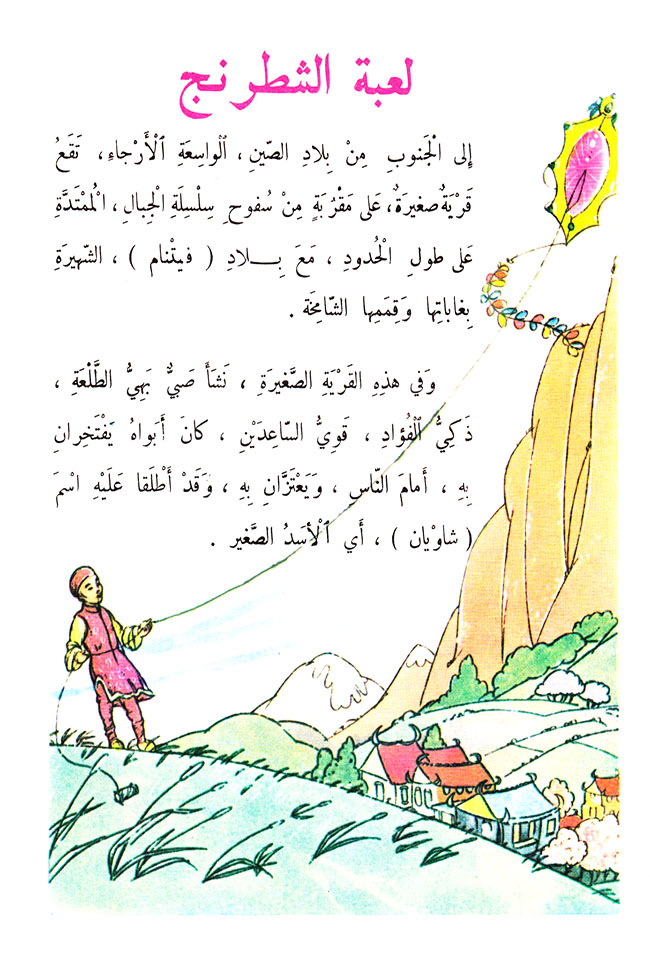 لعبة الشطرنج
إلى الْجَنوبِ مِنْ بِلادِ الصّينِ ، ٱلْواسِعَةِ ٱلْأَرْجاءِ ، تَقَعُ
قَرْيَةٌ صَغيرَةٌ ، عَلى مَقْرُبَةٍ مِنْ سُفوحِ سِلْسِلَةِ الْجِبالِ ، الْمُمْتَدَّةِ
عَلى طولِ الْحُدودِ ، مَعَ بِــلادِ ( فيتْنام ) ، الشَّهيرَةِ
بِغاباتِها وَقِمَمِها الشّامِخَة .
وَفي هذِهِ القَرْيَةِ الصَّغيرَةِ ، نَشَأَ صَبِيٌّ بَهِيُّ الطَّلْعَةِ ،
ذَكِيُّ ٱلْفُؤادِ ، قَوِيُّ السّاعِدَيْنِ ، كانَ أَبَواهُ يَفْتَخِرانِ
بِهِ ، أَمامَ النّاسِ ، وَيَعْتَزَّانِ بِهِ ، وَقَدْ أَطْلَقا عَلَيْهِ اسْمَ
( شاوْيان ) ، أَي ٱلْأَسَدُ الصَّغير .